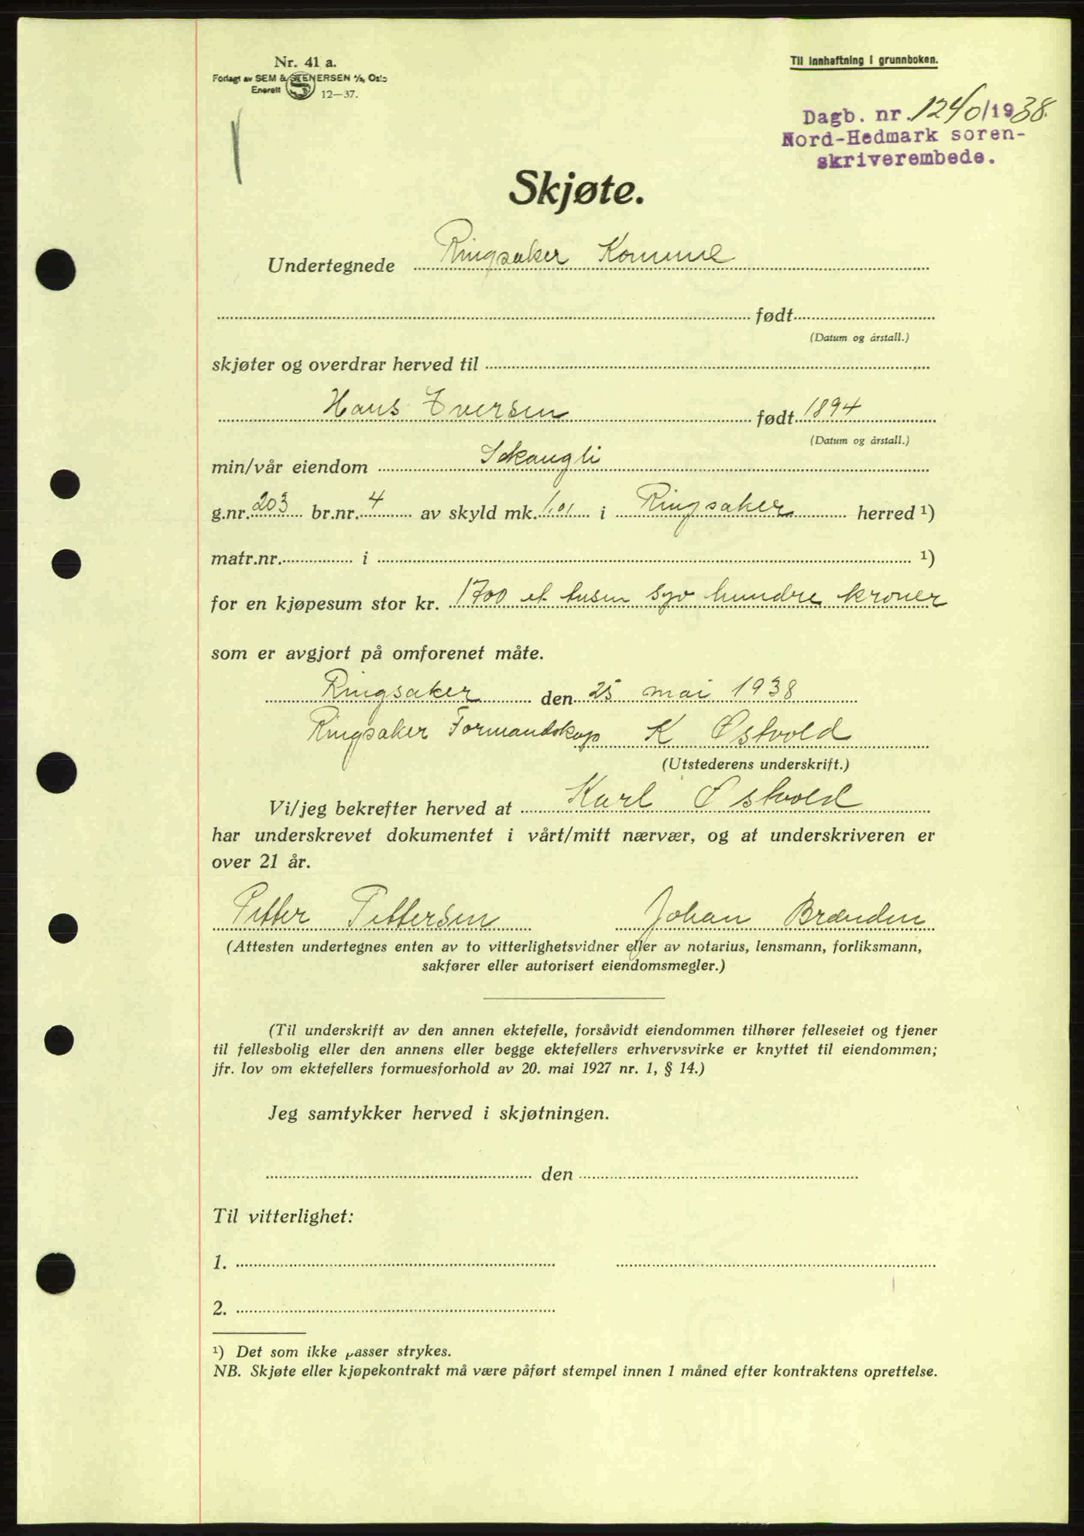 Nr. 41 a.
Forlagt av SEM & STENERSEN A/S, Oslo
Enerett 12—37.
Til innhaftning i grunnboken.
Dagb. nr. 1240/1938.
Nord-Hedmark soren-
skriverembede.
Skjøte.
Undertegnede Ringsaker Kommune
født
(Datum og årstall.)
skjøter og overdrar herved til
Hans Eversen født 1894
(Datum og årstall.)
min/vår eiendom Skaugli
g.nr. 203 br.nr. 4 av skyld mk. 1,01 i Ringsaker herred ¹)
matr.nr. i ¹)
for en kjøpesum stor kr. 1700 et tusen syv hundre kroner
som er avgjort på omforenet måte.
Ringsaker den 25 mai 1938
Ringsaker Formandskap K Østvold
(Utstederens underskrift.)
Vi/jeg bekrefter herved at Karl Østvold
har underskrevet dokumentet i vårt/mitt nærvær, og at underskriveren er
over 21 år.
Petter Pettersen Johan Brænden
(Attesten undertegnes enten av to vitterlighetsvidner eller av notarius, lensmann, forliksmann,
sakfører eller autorisert eiendomsmegler.)
(Til underskrift av den annen ektefelle, forsåvidt eiendommen tilhører felleseiet og tjener
til fellesbolig eller den annens eller begge ektefellers erhvervsvirke er knyttet til eiendommen;
jfr. lov om ektefellers formuesforhold av 20. mai 1927 nr. 1, § 14.)
Jeg samtykker herved i skjøtningen.
den
Til vitterlighet:
1.
2.
¹) Det som ikke passer strykes.
NB. Skjøte eller kjøpekontrakt må være påført stempel innen 1 måned efter kontraktens oprettelse.